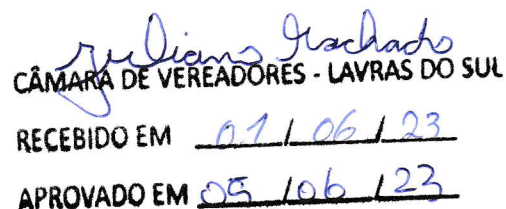 Juliano Machado
CÂMARA DE VEREADORES - LAVRAS DO SUL
RECEBIDO EM 01 / 06 / 23
APROVADO EM 05 / 06 / 23